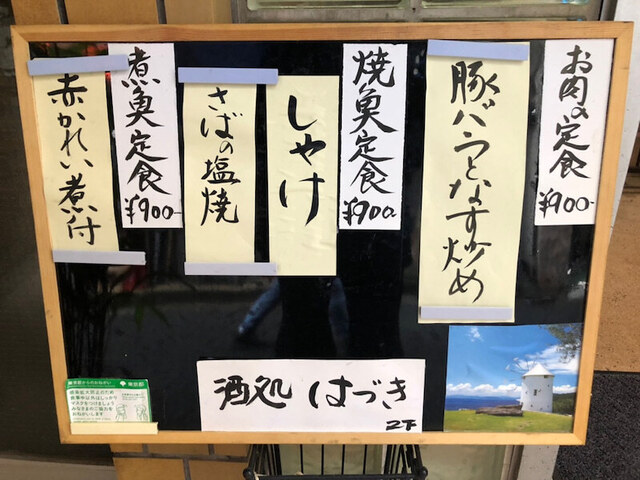 お肉の定食
¥900-
豚バラとなす炒め
焼魚定食
¥900-
しゃけ
さばの塩焼
煮魚定食
¥900-
赤かれい煮付
酒処 はづき
2F
東京都